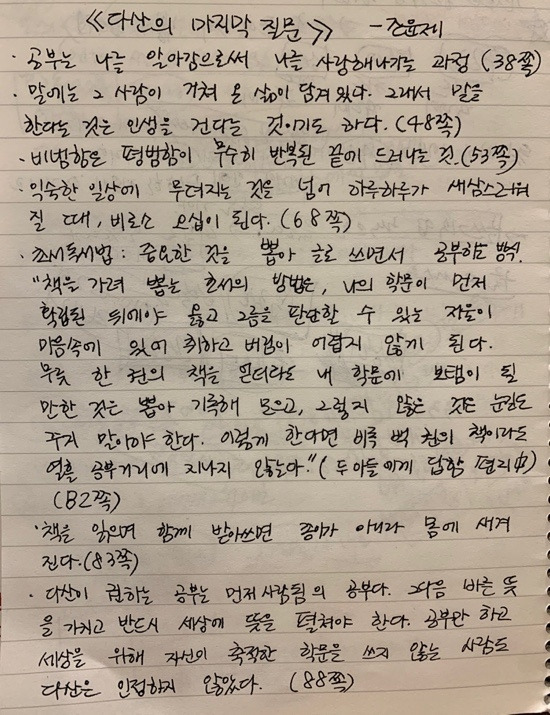 《다산의 마지막 질문》 - 조윤제
· 공부는 나를 알아감으로써 나를 사랑해나가는 과정 (38쪽)
· 말에는 그 사람이 거쳐 온 삶이 담겨있다. 그래서 말을
한다는 것은 인생을 건다는 것이기도 하다. (48쪽)
· 비범함은 평범함이 무수히 반복된 끝에 드러나는 것. (53쪽)
· 익숙한 일상에 무뎌지는 것을 넘어 하루하루가 새삼스러워
질 때, 비로소 오십이 된다. (68쪽)
· 초서독서법 : 중요한 것을 뽑아 글로 쓰면서 공부하는 방식.
"책을 가려 뽑는 초서의 방법은, 나의 학문이 먼저
확립된 뒤에야 옳고 그름을 판단할 수 있는 저울이
마음속에 있어 취하고 버림이 어렵지 않게 된다.
무릇 한 권의 책을 얻더라도 내 학문에 보탬이 될
만한 것은 뽑아 기록해 모으고, 그렇지 않은 것은 눈길도
주지 말아야 한다. 이렇게 한다면 비록 백 권의 책이라도
열흘 공부거리에 지나지 않는다." (두 아들에게 답함 편지中)
(82쪽)
· 책을 읽으며 함께 받아쓰면 종이가 아니라 몸에 새겨
진다. (83쪽)
· 다산이 권하는 공부는 먼저 사람됨의 공부다. 그다음 바른 뜻
을 가지고 반드시 세상에 뜻을 펼쳐야 한다. 공부만 하고
세상을 위해 자신의 축적한 학문을 쓰지 않는 사람도
다산은 인정하지 않았다. (88쪽)